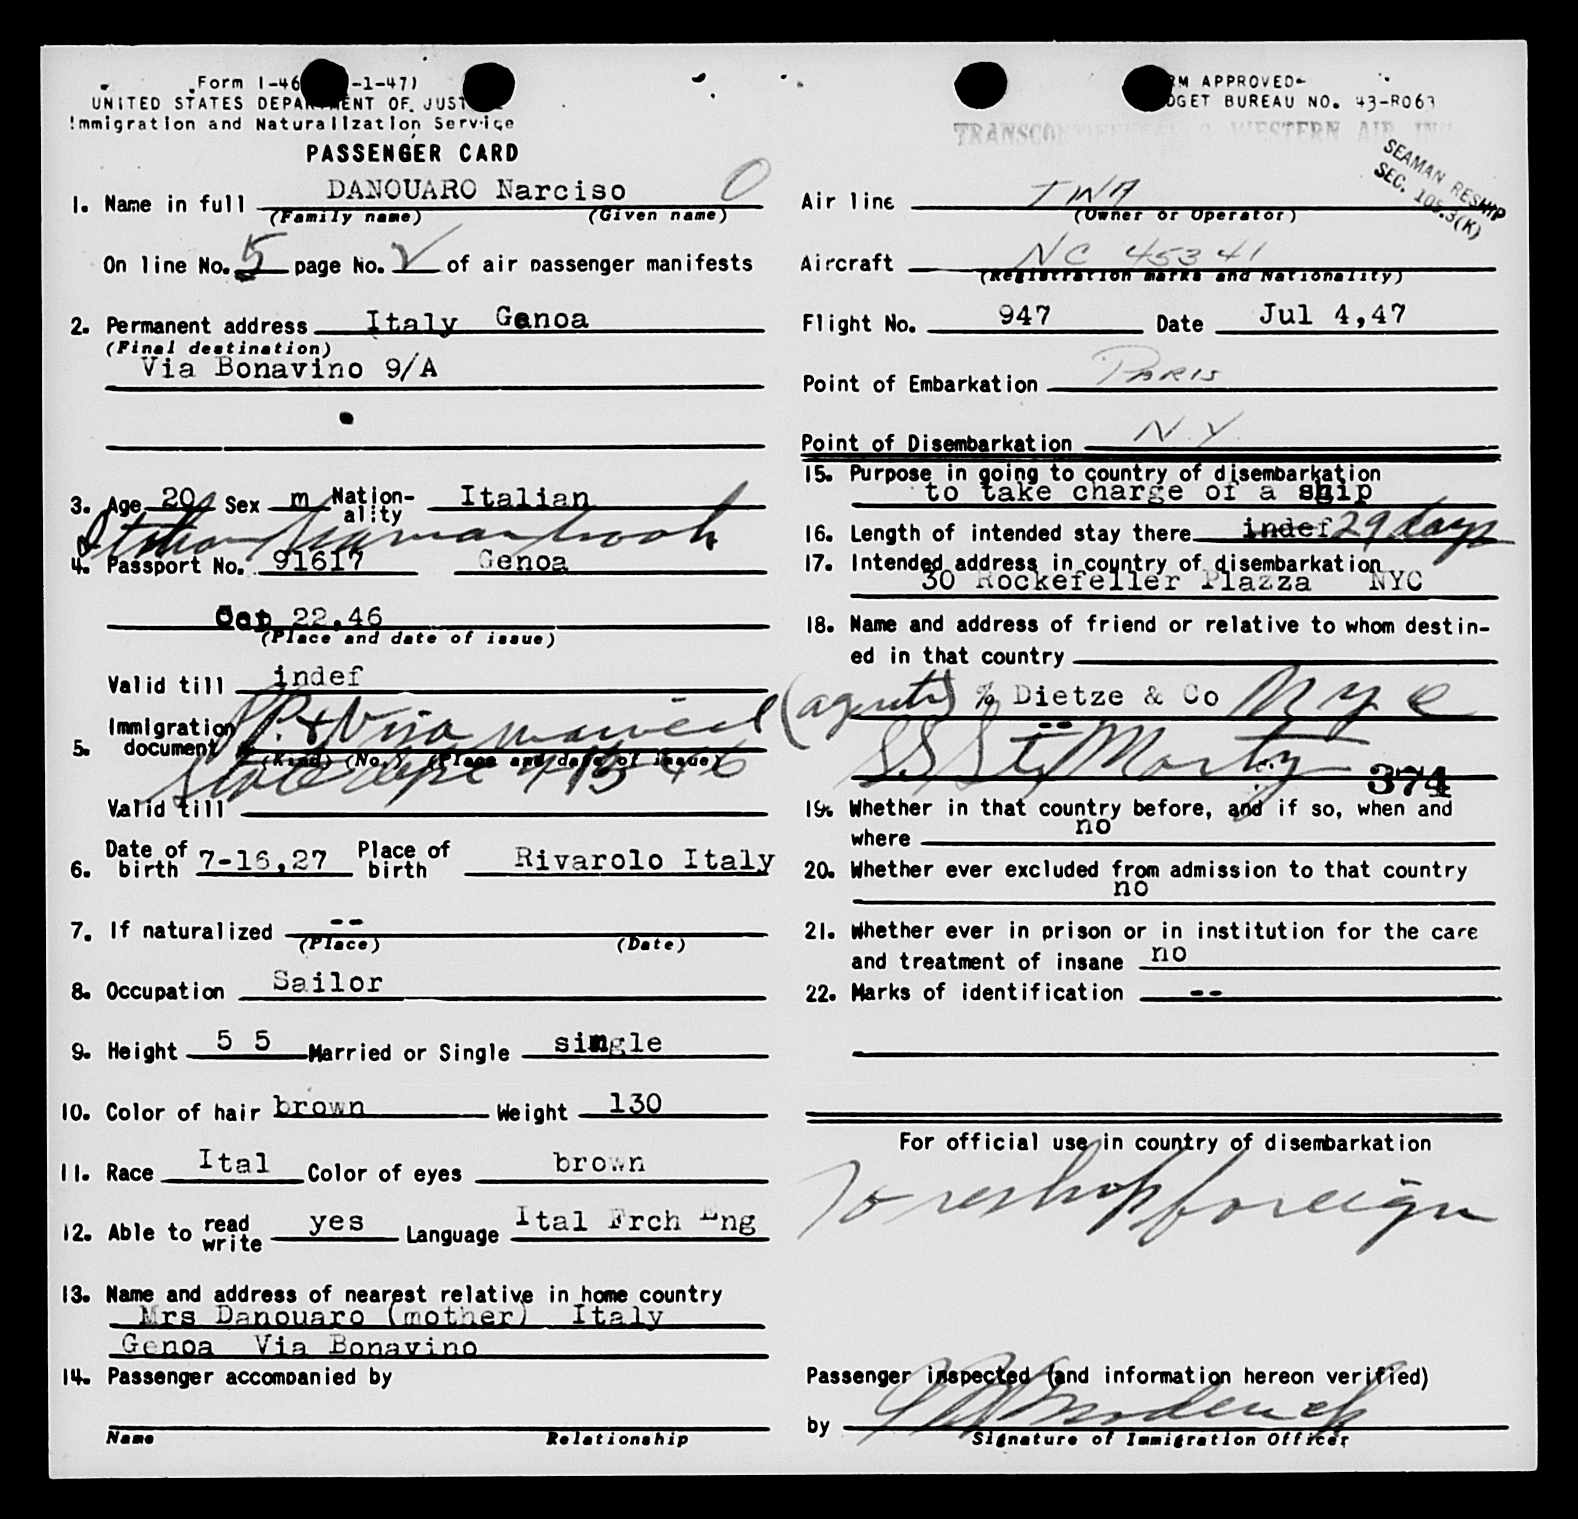 Form I-46 -1-47)
UNITED STATES DEPARTMENT OF JUST
Immigration and Naturalization Service
PASSENGER CARD
1. Name in full DANOUARO Narciso O
(Family name) (Given name)
On line No. 5 page No. V of air passenger manifests
2. Permanent address Italy Genoa
(Final destination)
Via Bonavino 9/A
3. Age 20 Sex m Nation-ality Italian
Italian Seamanbook
4. Passport No. 91617 Genoa
22,46
(Place and date of issue)
Valid till indef
5. Immigration document P.+ Visa waived
(Kind) (No.) (Place and date of issue)
State Dept
Valid till
6. Date of birth 7-16,27 Place of birth Rivarolo Italy
7. If naturalized --
(Place) (Date)
8. Occupation Sailor
9. Height 5 5 Married or Single single
10. Color of hair brown Weight 130
11. Race Ital Color of eyes brown
12. Able to read write yes Language Ital Frch Eng
13. Name and address of nearest relative in home country
Mrs Danouaro (mother) Italy
Genoa Via Bonavino
14. Passenger accompanied by
Name Relationship
RM APPROVED
DGET BUREAU NO. 43-R063
TRANSCONTINENTAL & WESTERN AIR INC
SEAMAN RESHIP
SEC. 105.3(K)
Air line TWA
(Owner or Operator)
Aircraft NC 45341
(Registration marks and Nationality)
Flight No. 947 Date Jul 4,47
Point of Embarkation PARIS
Point of Disembarkation N.Y.
15. Purpose in going to country of disembarkation
to take charge of a ship
16. Length of intended stay there indef 29 days
17. Intended address in country of disembarkation
30 Rockefeller Plazza NYC
18. Name and address of friend or relative to whom destin-
ed in that country
(agents) % Dietze & Co N Y C
--
SS St. Marty
374
19. Whether in that country before, and if so, when and
where no
20. Whether ever excluded from admission to that country
no
21. Whether ever in prison or in institution for the care
and treatment of insane no
22. Marks of identification --
For official use in country of disembarkation
To reship foreign
Passenger inspected (and information hereon verified)
by
Signature of Immigration Officer